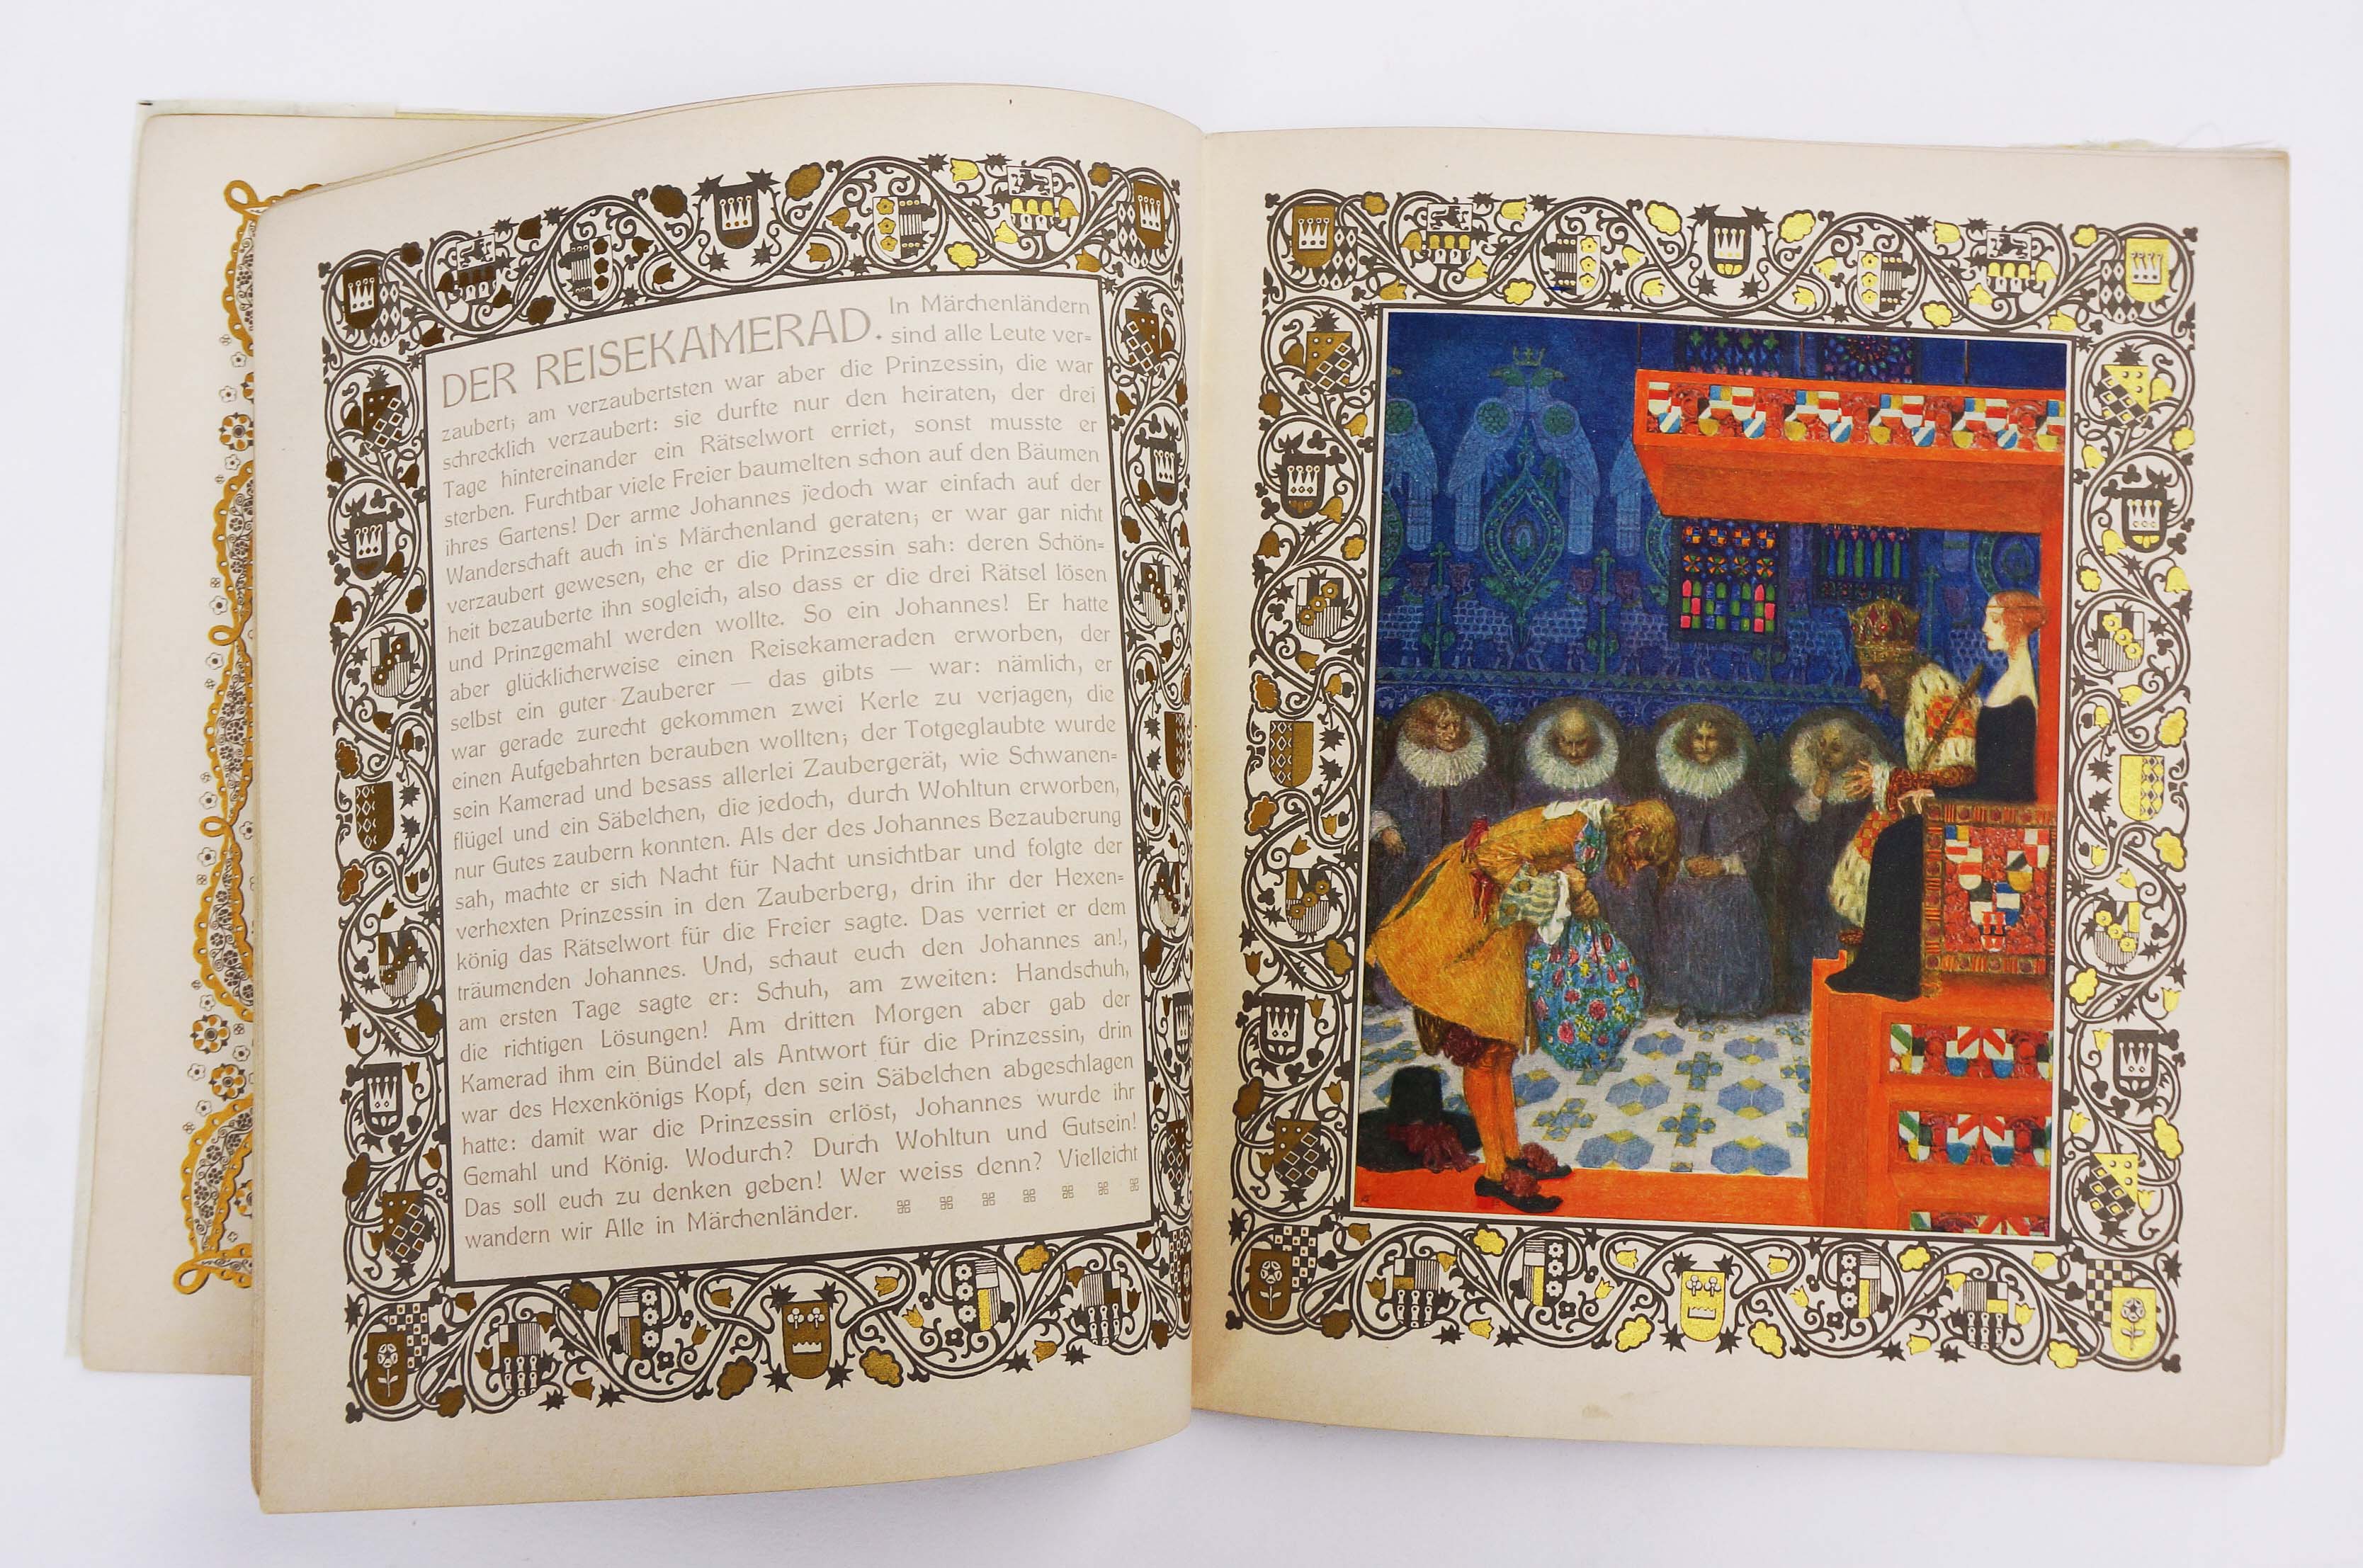 DER REISEKAMERAD. In Märchenländern
sind alle Leute ver=
zaubert; am verzaubertsten war aber die Prinzessin, die war
schrecklich verzaubert: sie durfte nur den heiraten, der drei
Tage hintereinander ein Rätselwort erriet, sonst musste er
sterben. Furchtbar viele Freier baumelten schon auf den Bäumen
ihres Gartens! Der arme Johannes jedoch war einfach auf der
Wanderschaft auch in's Märchenland geraten; er war gar nicht
verzaubert gewesen, ehe er die Prinzessin sah: deren Schön=
heit bezauberte ihn sogleich, also dass er die drei Rätsel lösen
und Prinzgemahl werden wollte. So ein Johannes! Er hatte
aber glücklicherweise einen Reisekameraden erworben, der
selbst ein guter Zauberer — das gibts — war: nämlich, er
war gerade zurecht gekommen zwei Kerle zu verjagen, die
einen Aufgebahrten berauben wollten; der Totgeglaubte wurde
sein Kamerad und besass allerlei Zaubergerät, wie Schwanen=
flügel und ein Säbelchen, die jedoch, durch Wohltun erworben,
nur Gutes zaubern konnten. Als der des Johannes Bezauberung
sah, machte er sich Nacht für Nacht unsichtbar und folgte der
verhexten Prinzessin in den Zauberberg, drin ihr der Hexen=
könig das Rätselwort für die Freier sagte. Das verriet er dem
träumenden Johannes. Und, schaut euch den Johannes an!,
am ersten Tage sagte er: Schuh, am zweiten: Handschuh,
die richtigen Lösungen! Am dritten Morgen aber gab der
Kamerad ihm ein Bündel als Antwort für die Prinzessin, drin
war des Hexenkönigs Kopf, den sein Säbelchen abgeschlagen
hatte: damit war die Prinzessin erlöst, Johannes wurde ihr
Gemahl und König. Wodurch? Durch Wohltun und Gutsein!
Das soll euch zu denken geben! Wer weiss denn? Vielleicht
wandern wir Alle in Märchenländer.